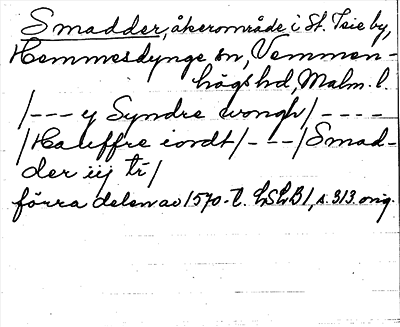 Smadder, åkerområde i St. Isie by,
Hemmesdynge sn, Vemmen-
högs hd, Malm. l.
/--- y Syndre wongh/----
/Haluffre iordt/---/Smad-
der iij tr/
förra delen av 1570-t. LSLB 1, s. 313. orig.